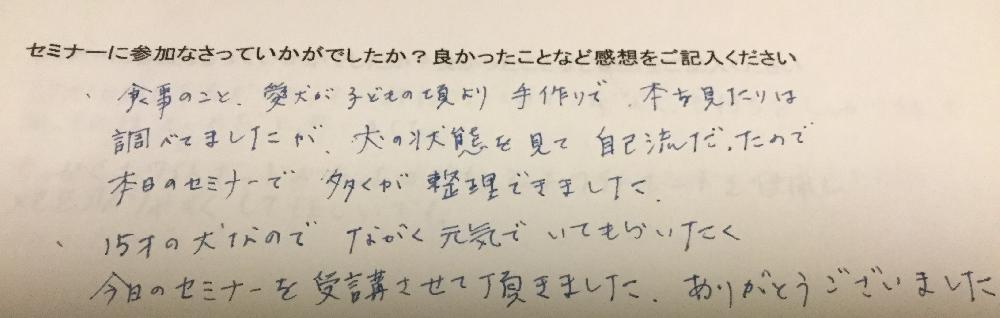 セミナーに参加なさっていかがでしたか？良かったことなど感想をご記入ください
・食事のこと、愛犬が子どもの頃より手作りで、本を見たりは
調べてましたが、犬の状態を見て自己流だったので
本日のセミナーで多くが整理できました。
・15才の犬なので ながく元気でいてもらいたく
今日のセミナーを受講させて頂きました。ありがとうございました